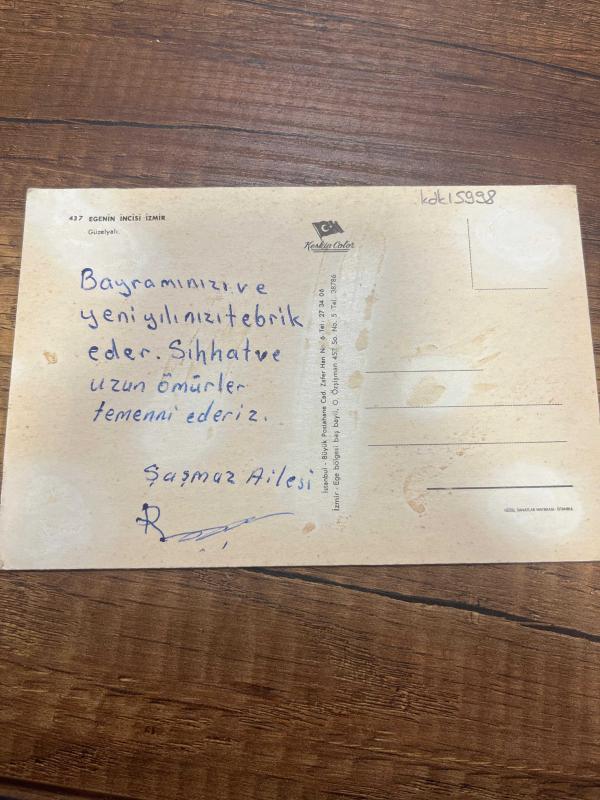 kdk15998
437 EGENİN İNCİSİ İZMİR
Güzelyalı.
Keskin Color
Bayramınızı ve
yeni yılınızı tebrik
eder. Sıhhat ve
uzun ömürler
temenni ederiz.
Şaşmaz Ailesi
İstanbul - Büyük Postahane Cad. Zafer Han No. 6 Tel. 27 34 06
İzmir - Ege bölgesi baş bayii, O. Özşişman 457 So. No. 5 Tel. 38786
GÜZEL SANATLAR MATBAASI - İSTANBUL